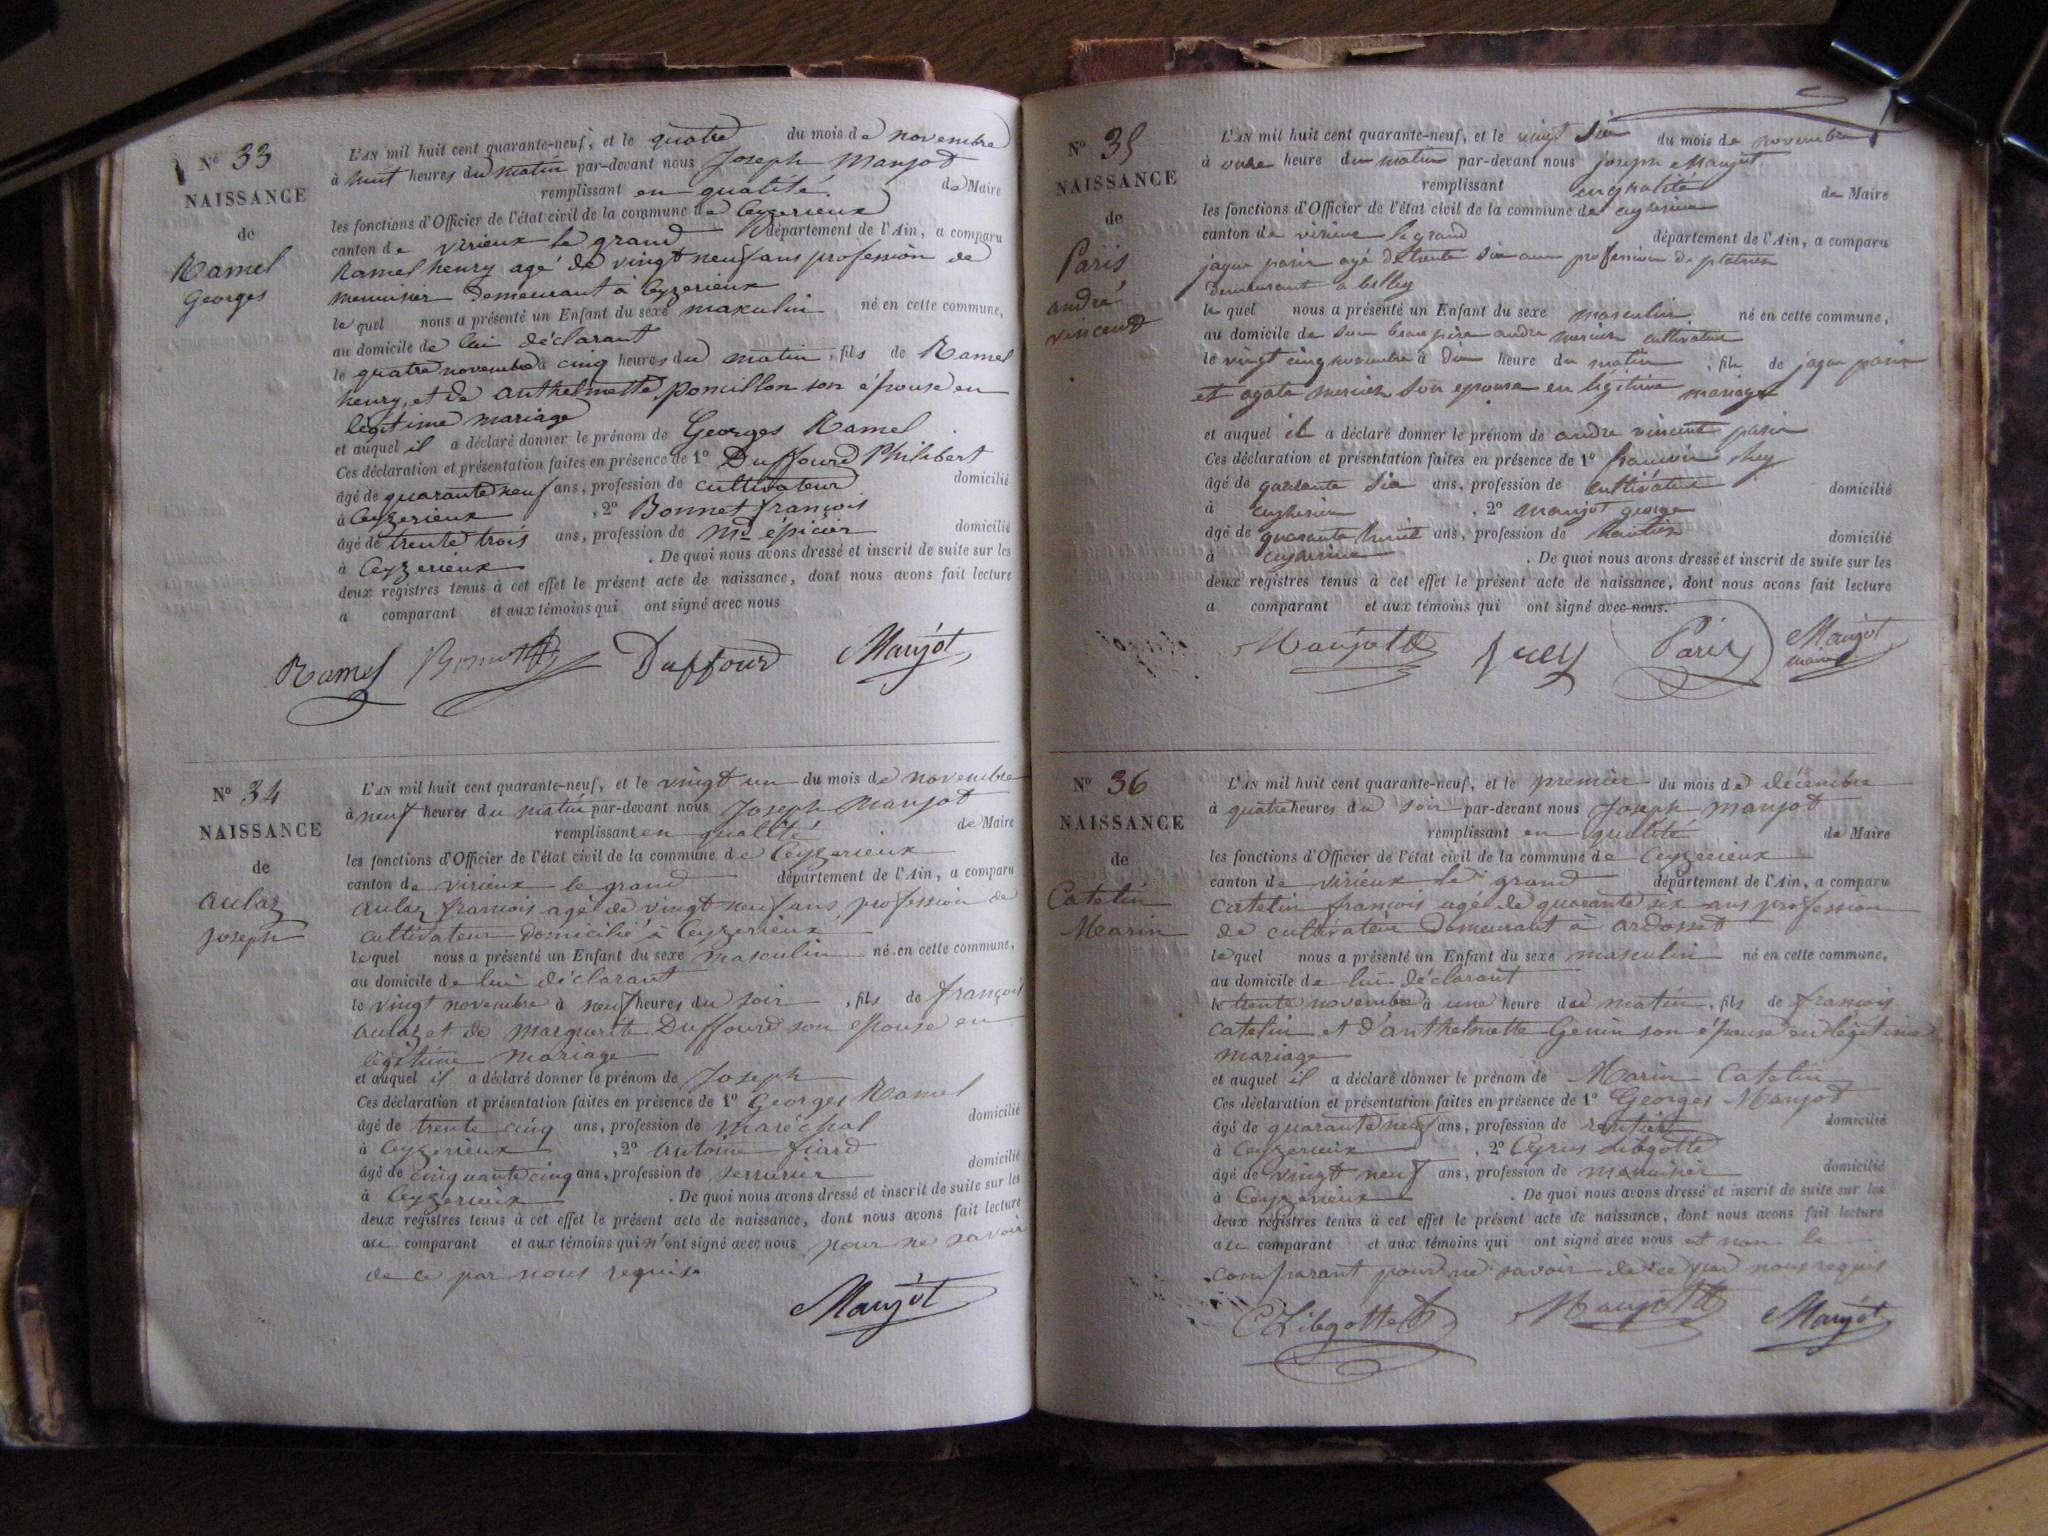 N° 33
NAISSANCE
de
Ramel
Georges
L'AN mil huit cent quarante-neuf, et le quatre du mois de novembre
à huit heures du matin par-devant nous Joseph Maujot
remplissant en qualité de Maire
les fonctions d'Officier de l'état civil de la commune de Ceyzerieux
canton de virieux le grand département de l'Ain, a comparu
Ramel henry agé de vingt neuf ans profession de
menuisier demeurant à Ceyzerieux
lequel nous a présenté un Enfant du sexe masculin né en cette commune,
au domicile de lui déclarant
le quatre novembre à cinq heures du matin, fils de Ramel
henry, et de anthelmette ponullon son épouse en
légitime mariage
et auquel il a déclaré donner le prénom de Georges Ramel
Ces déclaration et présentation faites en présence de 1° Duffourd Philibert
âgé de quarante neuf ans, profession de cultivateur domicilié
à Ceyzerieux , 2° Bonnet françois
âgé de trente trois ans, profession de md épicier domicilié
à Ceyzerieux . De quoi nous avons dressé et inscrit de suite sur les
deux registres tenus à cet effet le présent acte de naissance, dont nous avons fait lecture
a comparant et aux témoins qui ont signé avec nous
Ramel Bonnet Duffourd Maujot
N° 34
NAISSANCE
de
Aulaz
Joseph
L'AN mil huit cent quarante-neuf, et le vingt un du mois de novembre
à neuf heures du matin par-devant nous Joseph Maujot
remplissant en qualité de Maire
les fonctions d'Officier de l'état civil de la commune de Ceyzerieux
canton de virieux le grand département de l'Ain, a comparu
Aulaz francois agé de vingt neuf ans profession de
cultivateur domicilié à Ceyzerieux
lequel nous a présenté un Enfant du sexe masculin né en cette commune,
au domicile de lui déclarant
le vingt novembre à neuf heures du soir , fils de françois
aulaz et de marguerite Duffourd son epouse en
légitime mariage
et auquel il a déclaré donner le prénom de Joseph
Ces déclaration et présentation faites en présence de 1° Georges Ramel
âgé de trente cinq ans, profession de maréchal domicilié
à Ceyzerieux , 2° Antoine fiard
âgé de cinquante cinq ans, profession de serrurier domicilié
à Ceyzerieux . De quoi nous avons dressé et inscrit de suite sur les
deux registres tenus à cet effet le présent acte de naissance, dont nous avons fait lecture
au comparant et aux témoins qui n'ont signé avec nous pour ne savoir
de ce par nous requis
Maujot
N° 35
NAISSANCE
de
Paris
andré
vincent
L'AN mil huit cent quarante-neuf, et le vingt six du mois de novembre
à onze heure du matin par-devant nous joseph Maujot
remplissant enqualité de Maire
les fonctions d'Officier de l'état civil de la commune de
canton de virieux legrand département de l'Ain, a comparu
jaque paris agé de trente six ans profession de platrier
demeurant a belley
lequel nous a présenté un Enfant du sexe masculin né en cette commune,
au domicile de son beau père andre mercier cultivateur
le vingt cinq novembre à dix heure du matin , fils de jaque paris
et agata mercier son epouse en légitime mariage
et auquel il a déclaré donner le prénom de andre vincent paris
Ces déclaration et présentation faites en présence de 1° francois
âgé de quarante six ans, profession de cultivateur domicilié
à , 2° maujot george
âgé de quarante huit ans, profession de rentier domicilié
à . De quoi nous avons dressé et inscrit de suite sur les
deux registres tenus à cet effet le présent acte de naissance, dont nous avons fait lecture
a comparant et aux témoins qui ont signé avec nous.
Maujot Paris Maujot
maire
N° 36
NAISSANCE
de
Catelin
Marin
L'AN mil huit cent quarante-neuf, et le premier du mois de décembre
à quatre heures du soir par-devant nous Joseph Maujot
remplissant en qualité de Maire
les fonctions d'Officier de l'état civil de la commune de Ceyzerieux
canton de virieux le grand département de l'Ain, a comparu
Catelin françois agé de quarante six ans profession
de cultivateur demeurant à ardosset
lequel nous a présenté un Enfant du sexe masculin né en cette commune,
au domicile de lui déclarant
le trente novembre à une heure du matin, fils de francois
Catelin et d'anthelmette Genin son épouse en légitime
mariage
et auquel il a déclaré donner le prénom de Marin Catelin
Ces déclaration et présentation faites en présence de 1° Georges Maujot
âgé de quarante neuf ans, profession de rentier domicilié
à Ceyzerieux , 2° Cyrus Libgotte
âgé de vingt neuf ans, profession de menuisier domicilié
à Ceyzerieux . De quoi nous avons dressé et inscrit de suite sur les
deux registres tenus à cet effet le présent acte de naissance, dont nous avons fait lecture
au comparant et aux témoins qui ont signé avec nous et non le
comparant pour ne savoir de ce par nous requis
C Libgotte Maujot Maujot